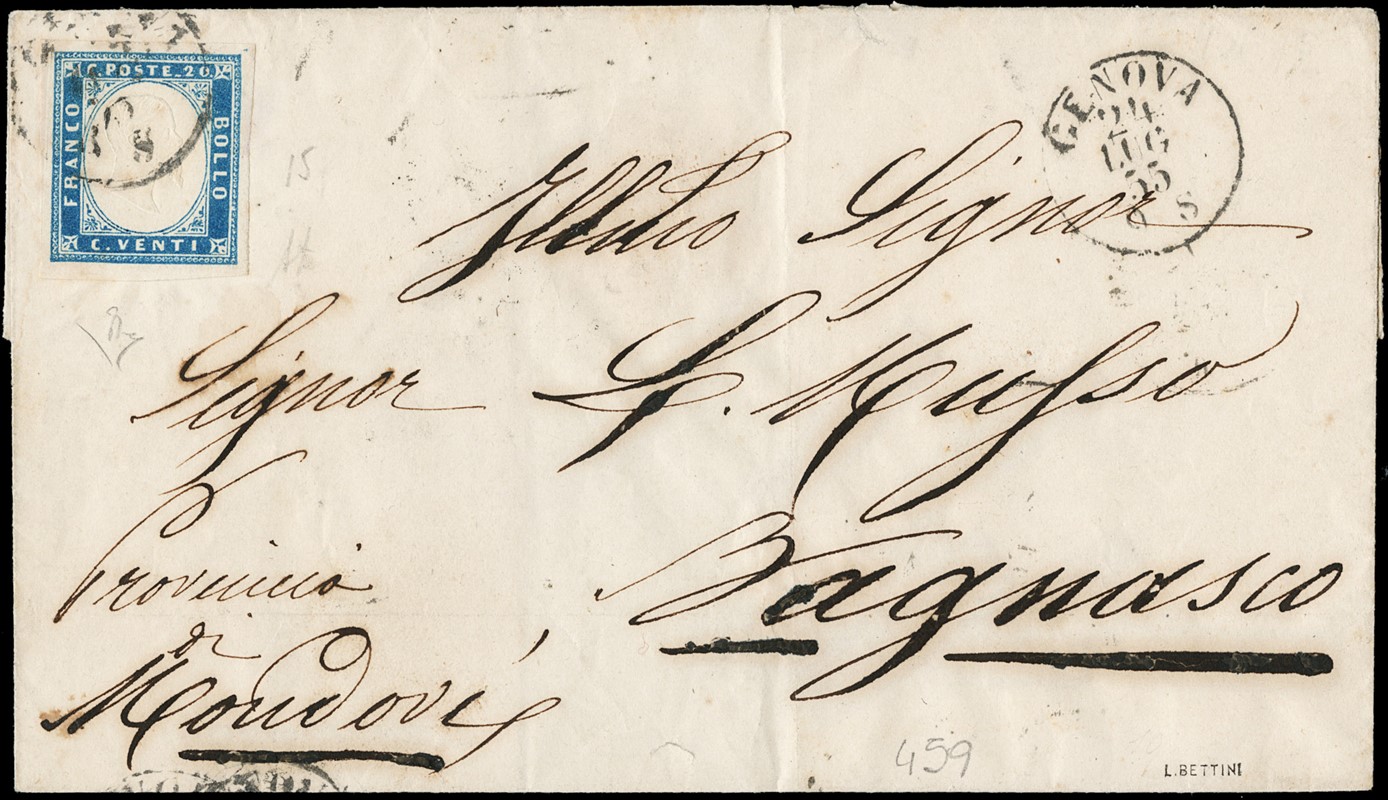 C. POSTE. 20
FRANCO
BOLLO
C. VENTI
S
GENOVA
24
LUG
55
6 S
15
Illmo Signor
Signor G. Musso
Bagnasco
Provincia
di
Mondovì
459
L. BETTINI